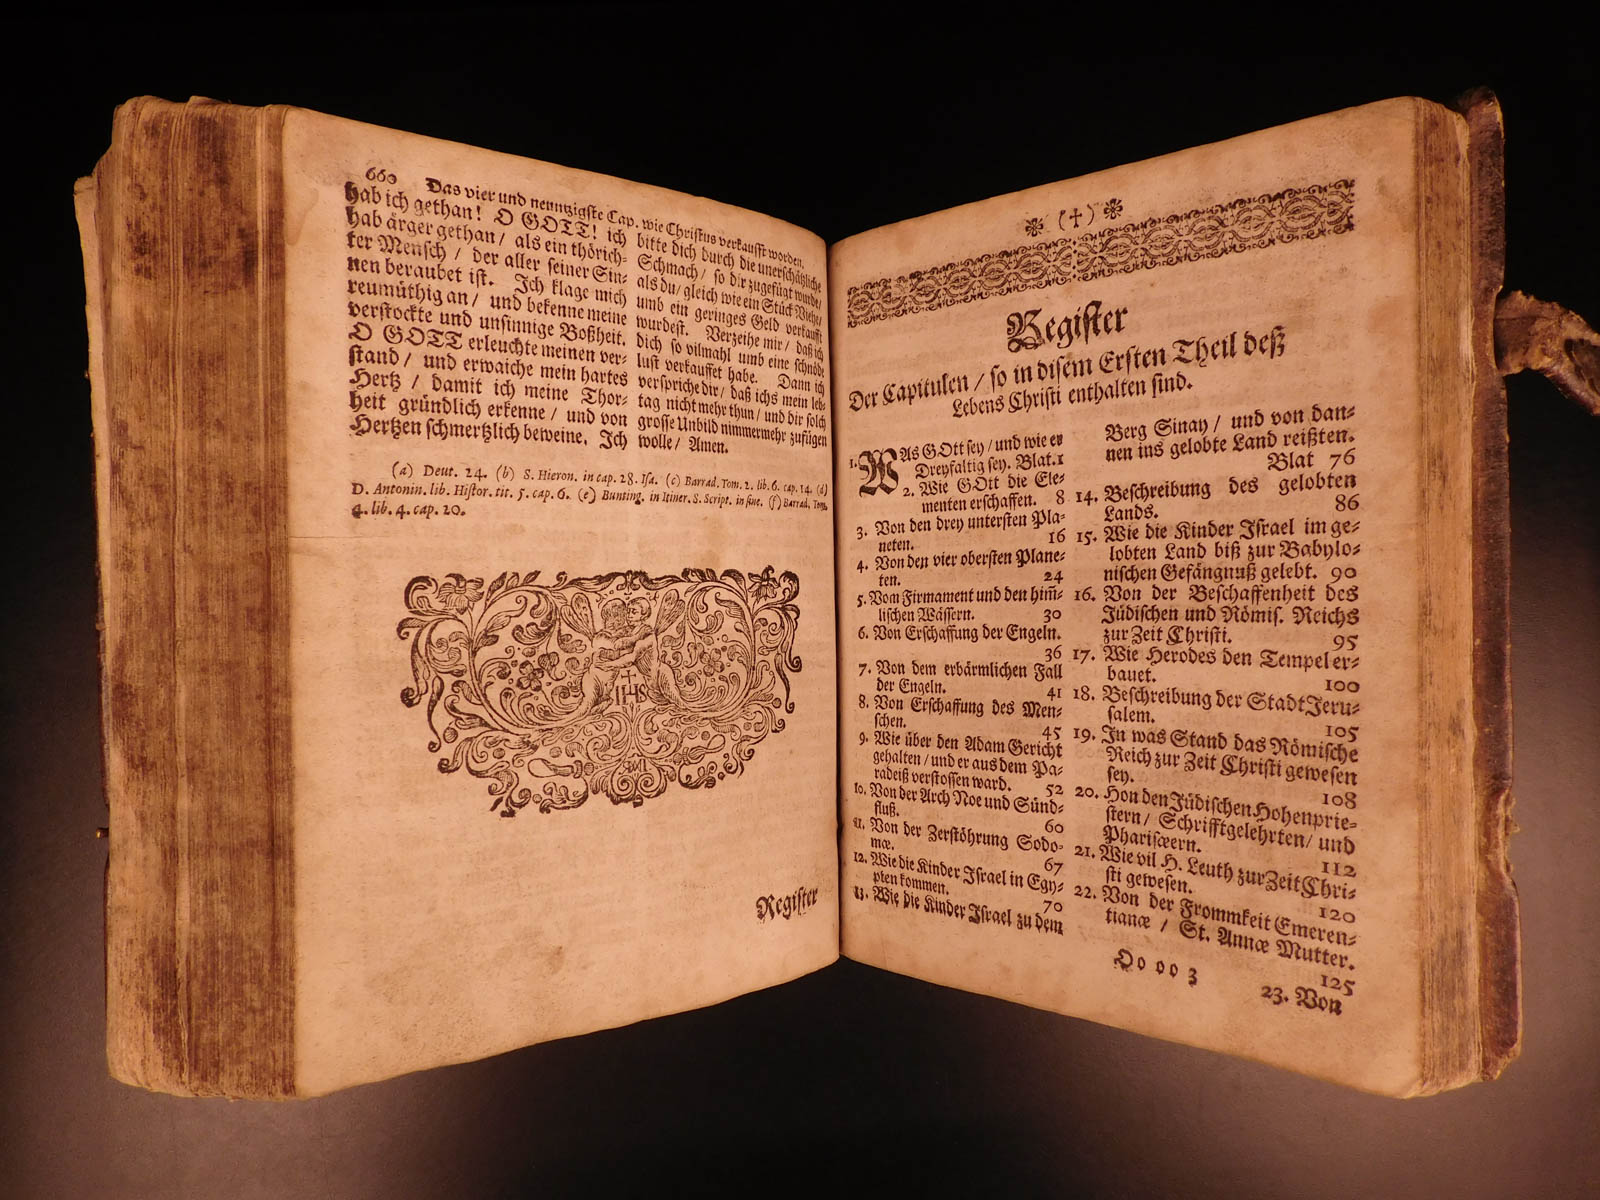 660 Das vier und neuntzigste Cap. wie Christus verkaufft worden.
hab ich gethan! O GOTT! ich
hab ärger gethan / als ein thörich-
ter Mensch / der aller seiner Sin-
nen beraubet ist. Ich klage mich
reumüthig an / und bekenne meine
verstockte und unsinnige Boßheit.
O GOTT erleuchte meinen ver-
stand / und erwaiche mein hartes
Hertz / damit ich meine Thor-
heit gründlich erkenne / und von
Hertzen schmertzlich beweine. Ich
bitte dich durch die unerschätzliche
Schmach / so dir zugefügt wurde /
als du / gleich wie ein Stück Viehe /
umb ein geringes Geld verkaufft
wurdest. Verzeihe mir / daß ich
dich so vilmahl umb eine schnöde
lust verkauffet habe. Dann ich
verspriche dir / daß ichs mein leb-
tag nicht mehr thun / und dir solch
grosse Unbild nimmermehr zufügen
wolle / Amen.
(a) Deut. 24. (b) S. Hieron. in cap. 28. Isa. (c) Barrad. Tom. 2. lib. 6. cap. 14. (d)
D. Antonin. lib. Histor. tit. 5. cap. 6. (e) Bunting. in Itiner. S. Script. in fine. (f) Barrad. Tom.
4. lib. 4. cap. 20.
IHS
Register
(†)
Register
Der Capitulen / so in disem Ersten Theil deß
Lebens Christi enthalten sind.
1. WAs GOtt sey / und wie er
Dreyfaltig sey. Blat. 1
2. Wie GOtt die Ele-
menten erschaffen. 8
3. Von den drey untersten Pla-
neten. 16
4. Von den vier obersten Plane-
ten. 24
5. Vom Firmament und den him̃-
lischen Wässern. 30
6. Von Erschaffung der Engeln.
36
7. Von dem erbärmlichen Fall
der Engeln. 41
8. Von Erschaffung des Men-
schen. 45
9. Wie über den Adam Gericht
gehalten / und er aus dem Pa-
radeiß verstossen ward. 52
10. Von der Arch Noe und Sünd-
fluß. 60
11. Von der Zerstöhrung Sodo-
mæ. 67
12. Wie die Kinder Israel in Egy-
pten kommen. 70
13. Wie die Kinder Israel zu dem
Berg Sinay / und von dan-
nen ins gelobte Land reißten.
Blat 76
14. Beschreibung des gelobten
Lands. 86
15. Wie die Kinder Israel im ge-
lobten Land biß zur Babylo-
nischen Gefängnuß gelebt. 90
16. Von der Beschaffenheit des
Jüdischen und Römis. Reichs
zur Zeit Christi. 95
17. Wie Herodes den Tempel er-
bauet. 100
18. Beschreibung der Stadt Jeru-
salem. 105
19. In was Stand das Römische
Reich zur Zeit Christi gewesen
sey. 108
20. Hon den Jüdischen Hohenprie-
stern / Schrifftgelehrten / und
Pharisæern. 112
21. Wie vil H. Leuth zur Zeit Chri-
sti gewesen. 120
22. Von der Frommkeit Emeren-
tianæ / St. Annæ Mutter.
125
Oo oo 3
23. Von